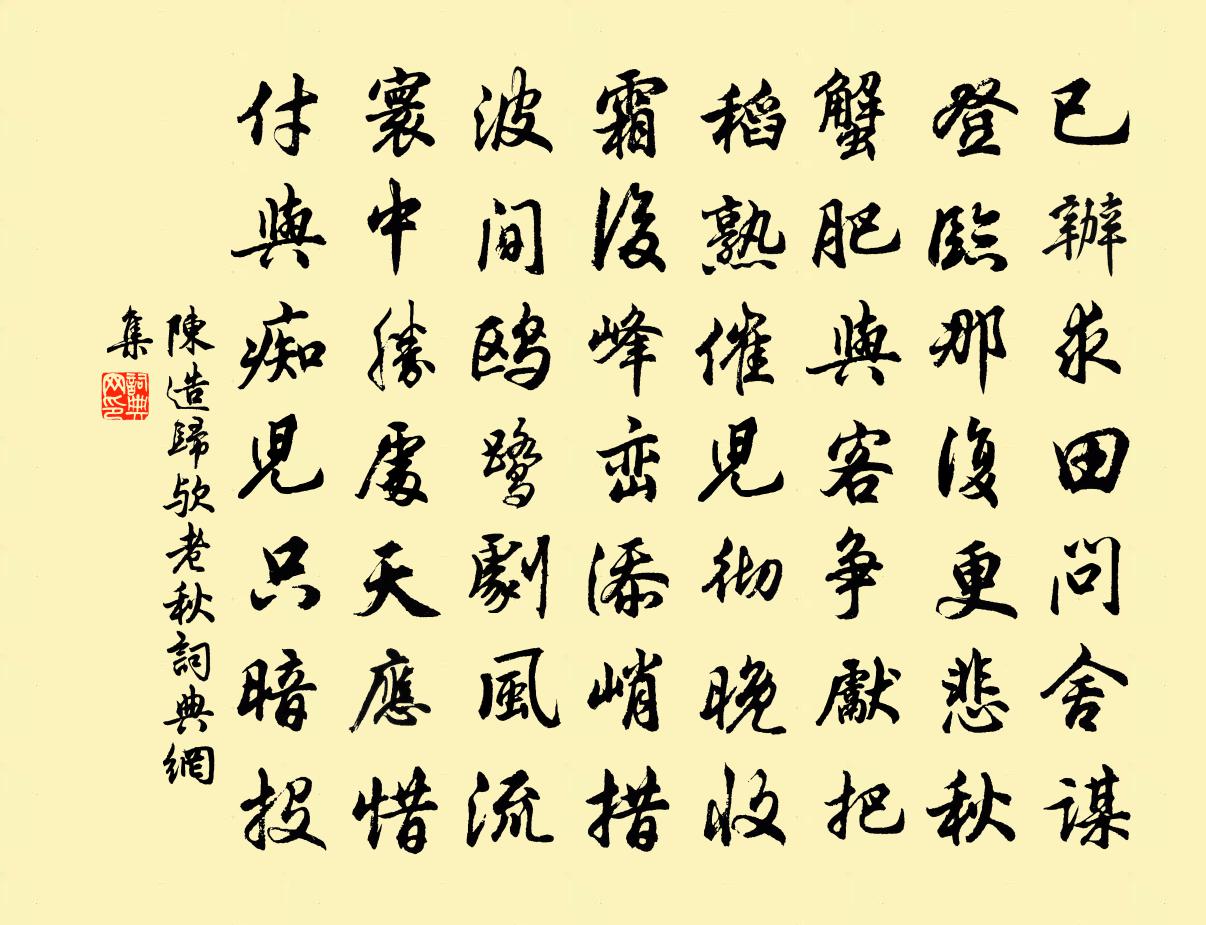 已辦求田問舍謀
登臨那復更悲秋
蟹肥與客争獻把
稻熟催兒彻晚收
霜後峰巒添峭措
波间鸥鷺劇風流
寰中勝處天應惜
付與痴兒只暗投
陳造歸歟老秋詞典網
集
詞典
网印